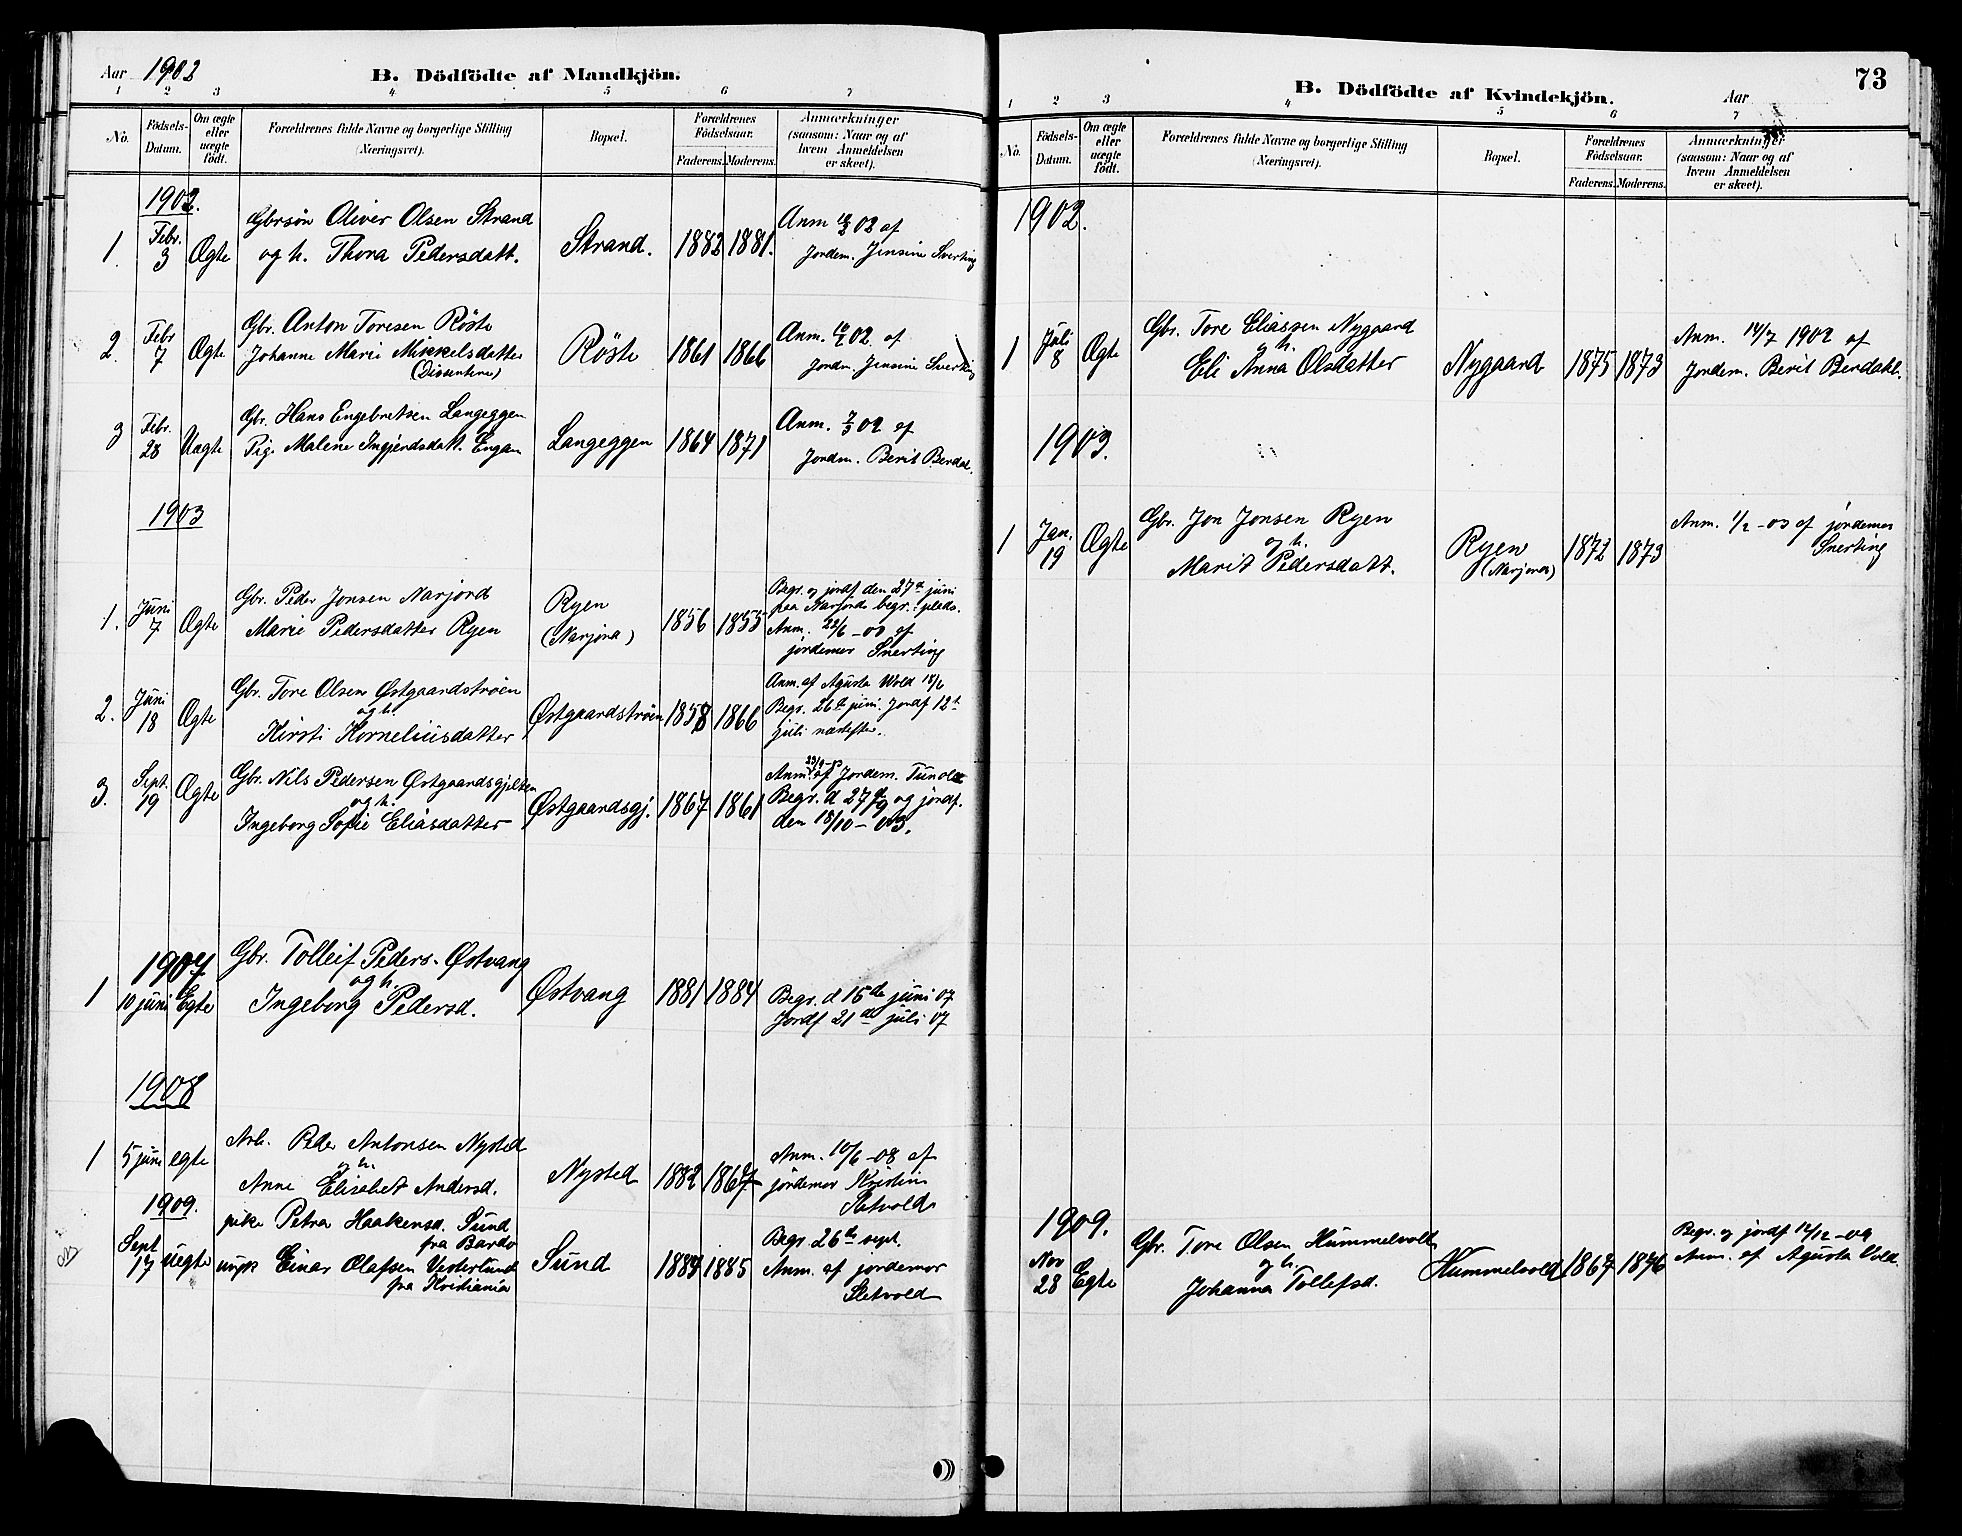 Aar 1902
B. Dödfödte af Mandkjön.
1 2 3 4 5 6 7
No.
Födsels-Datum.
Om ægte eller uægte födt.
Forældrenes fulde Navne og borgerlige Stilling
(Næringsvei).
Bopæl.
Forældrenes Födselsaar.
Faderens. Moderens.
Anmærkninger
(saasom: Naar og af
hvem Anmeldelsen
er skeet).
1902.
1. Febr. 3 Ægte
Gbrsøn Oliver Olsen Strand
og h. Thora Pedersdatt.
Strand. 1882 1881.
Anm 02 af
Jordem. Jensine Sverting
2. Febr 7 Ægte
Gbr. Anton Toresen Röste
Johanne Marie Mikkelsdatter
(Dissentere)
Röste 1861 1866
Anm. 02. af
Jordm. Jensine Sverting
3 Febr. 28 Uægte
Gbr. Hans Engebretsen Langeggen
Pig. Malene Ingjerdsdatt. Engan
Langeggen 1864 1871
Anm. 7/3 02 af
Jordm. Berit Berdal.
1903
1. Juni 7 Ægte
Gbr. Peder Jonsen Narjord
Marie Pedersdatter Ryen
Ryen
(Narjora)
1856 1855
Begr. og jordf den 27de juni
paa Narjords begr. plads.
Anm. 22/6 - 03 af
jordemor Snerting
2. Juni 18 Ægte
Gbr. Tore Olsen Østgaardstrøen
og h.
Kirsti Korneliusdatter
Østgaardstrøen 1858 1866
Anm. af Agusta Wold 18/6
Begr. 26de juni. Jordf 12te
juli næstefter.
3. Sept. 19 Ægte
Gbr. Nils Pedersen Østgaardsgjelten
og h.
Ingeborg Sofie Eliasdatter
Østgaardsgj. 1867 1861
Anm. af Jordem.
Begr. d 27/9 og jordf.
den 18/10 - 03.
1907
1 10 juni Egte
Gbr. Tolleif Peders. Østvang
og h.
Ingeborg Pedersd.
Østvang 1881 1884
Begr. d 15de juni 07
Jordf 21de juli 07
1908
1 5 juni egte
Arb. Peder Antonsen Nysted
og h.
Anne Elisabet Andersd.
Nysted 1882 1867
Anm. 10/6 - 08 af
jordemor Kristine
Sletvold
1909.
Sept 17 uegte
pike Petra Haakensd. Sund
fra Bardo
ungk Einar Olafsen Vesterlund
fra Kristiania
Sund 1884 1885
Begr 26de sept.
Anm. af jordemor
Sletvold
B. Dödfödte af Kvindekjön.
Aar
73
1 2 3 4 5 6 7
No.
Födsels-Datum.
Om ægte eller uægte födt.
Forældrenes fulde Navne og borgerlige Stilling
(Næringsvei).
Bopæl.
Forældrenes Födselsaar.
Faderens. Moderens.
Anmærkninger
(saasom: Naar og af
hvem Anmeldelsen
er skeet).
1902.
1 Juli 8 Ægte
Gbr. Tore Eliassen Nygaard
og h.
Eli Anna Olsdatter
Nygaard 1875 1873
Anm. 14/7 1902 af
Jordem. Berit Berdahl.
1903.
1 Jan. 19 Ægte
Gbr. Jon Jonsen Ryen
og h.
Marit Pedersdatt.
Ryen
(Narjora)
1872 1873
Anm. 1/2 - 03 af jordemor
Snerting
1909.
Nov 28 Egte
Gbr. Tore Olsen Hummelvold
og h.
Johanna Tollefsd.
Hummelvold 1867 1876
Begr. og jordf 12/12 - 09
Anm. af Agusta Vold.